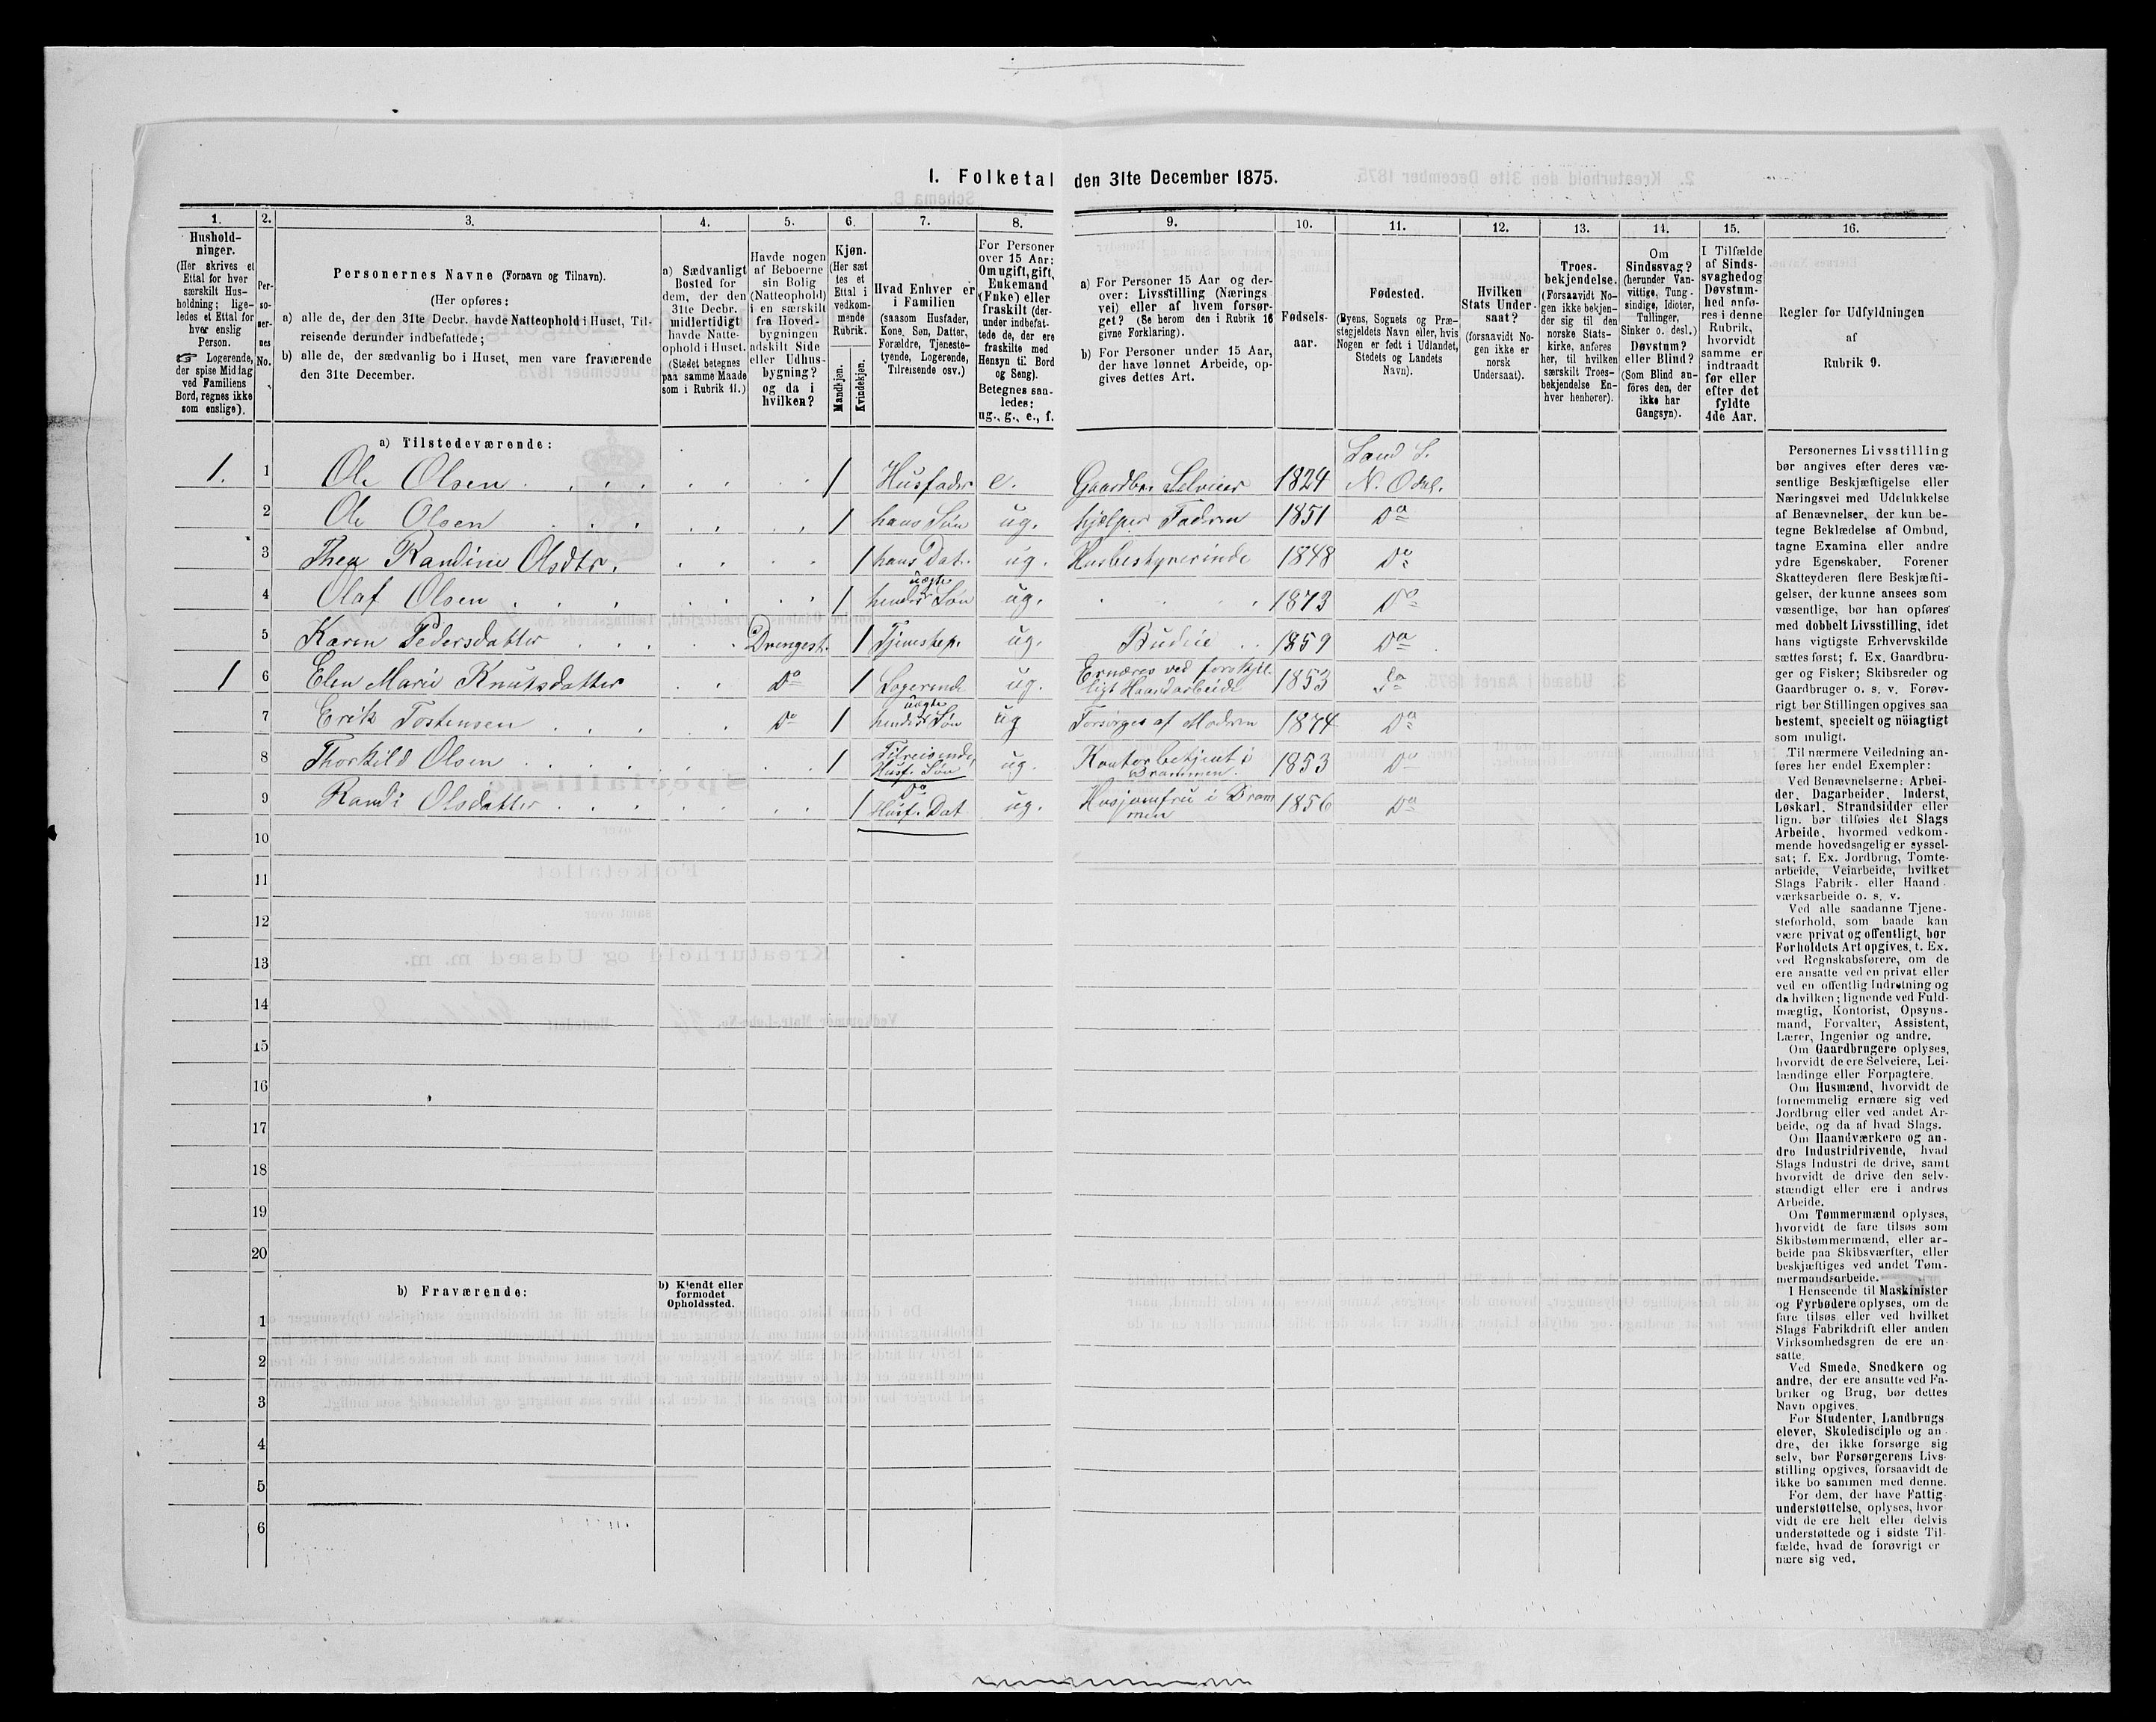 I. Folketal den 31te December 1875.
1. 2. 3. 4. 5. 6. 7. 8. 9. 10. 11. 12. 13. 14. 15. 16.
Hushold-
ninger.
(Her skrives et
Ettal for hver
særskilt Hus-
holdning; lige-
ledes et Ettal for
hver enslig
Person.
☞ Logerende,
der spise Middag
ved Familiens
Bord, regnes ikke
som enslige).
Per-
so-
ner-
nes
No.
Personernes Navne (Fornavn og Tilnavn).
(Her opføres:
a) alle de, der den 31te Decbr. havde Natteophold i Huset, Til-
reisende derunder indbefattede;
b) alle de, der sædvanlig bo i Huset, men vare fraværende
den 31te December.
a) Sædvanligt
Bosted for
dem, der den
31te Decbr.
midlertidigt
havde Natte-
ophold i Huset.
(Stedet betegnes
paa samme Maade
som i Rubrik 11.)
Havde nogen
af Beboerne
sin Bolig
(Natteophold)
i en særskilt
fra Hoved-
bygningen
adskilt Side
eller Udhus-
bygning?
og da i
hvilken?
Kjøn.
(Her sæt
tes et
Ettal i
vedkom-
mende
Rubrik.
Mandkjøn.
Kvindekjøn.
Hvad Enhver er
i Familien
(saasom Husfader,
Kone, Søn, Datter,
Forældre, Tjeneste-
tyende, Logerende,
Tilreisende osv.)
For Personer
over 15 Aar:
Om ugift, gift,
Enkemand
(Enke) eller
fraskilt (der-
under indbefat-
tede de, der ere
fraskilte med
Hensyn til Bord
og Seng).
Betegnes saa-
ledes:
ug., g., e., f.
a) For Personer 15 Aar og der-
over: Livsstilling (Nærings
vei) eller af hvem forsør-
get? (Se herom den i Rubrik 16
givne Forklaring).
b) For Personer under 15 Aar,
der have lønnet Arbeide, op-
gives dettes Art.
Fødsels-
aar.
Fødested.
(Byens, Sognets og Præ-
stegjeldets Navn eller, hvis
Nogen er født i Udlandet,
Stedets og Landets
Navn).
Hvilken
Stats Under-
saat?
(forsaavidt No-
gen ikke er
norsk
Undersaat).
Troes-
bekjendelse.
(Forsaavidt No-
gen ikke bekjen-
der sig til den
norske Stats-
kirke, anføres
her, til hvilken
særskilt Troes-
bekjendelse En-
hver henhører).
Om
Sindssvag?
(herunder Van-
vittige, Tung-
sindige, Idioter,
Tullinger,
Sinker o. desl.)
Døvstum?
eller Blind?
(Som Blind an-
føres den, der
ikke har
Gangsyn).
I Tilfælde
af Sinds-
svaghed og
Døvstum-
hed anfø-
res i denne
Rubrik,
hvorvidt
samme er
indtraadt
før eller
efter det
fyldte
4de Aar.
Regler for Udfyldningen
af
Rubrik 9.
a) Tilstedeværende:
Sand S.
1. 1 Ole Olsen 1 Husfader e. Gaardbr. Selveier 1824 N. Odal.
2 Ole Olsen 1 hans Søn ug. hjelper Faderen 1851 Do
3 Thea Randine Olsdtr. 1 hans Dat. ug. Husbestyrerinde 1848 Do
4 Olaf Olsen 1 hendes uægte Søn ug. 1873 Do
5 Karen Pedersdatter Drengest. 1 Tjenestep. ug. Budeie 1859 Do
1 6 Elen Marie Knutsdatter Do 1 Logerende ug. Ernæres ved forskjel-
ligt Haandarbeide 1853 Do
7 Erik Tostensen Do 1 hendes uægte Søn ug Forsørges af Moderen 1874 Do
8 Thorkild Olsen 1 Tilreisende, Husf. Søn ug. Kontorbetjent i
Drammen. 1853 Do
9 Randi Olsdatter 1 Do Husf. Dat. ug. Husjomfru i Dram
men 1856 Do
10
11
12
13
14
15
16
17
18
19
20
b) Fraværende:
b) Kjendt eller
formodet
Opholdssted.
1
2
3
4
5
6
Personernes Livsstilling
bør angives efter deres væ-
sentlige Beskjæftigelse eller
Næringsvei med Udelukkelse
af Benævnelser, der kun be-
tegne Beklædelse af Ombud,
tagne Examina eller andre
ydre Egenskaber. Forener
Skatteyderen flere Beskjæfti-
gelser, der kunne ansees som
væsentlige, bør han opføres
med dobbelt Livsstilling, idet
hans vigtigste Erhvervskilde
sættes først; f. Ex. Gaardbru-
ger og Fisker; Skibsreder og
Gaardbruger o. s. v. Forøv-
rigt bør Stillingen opgives saa
bestemt, specielt og nöiagtigt
som muligt.
Til nærmere Veiledning an-
føres her endel Exempler:
Ved Benævnelserne: Arbei-
der, Dagarbeider, Inderst,
Løskarl, Strandsidder eller
lign. bør tilføies det Slags
Arbeide, hvormed vedkom-
mende hovedsagelig er syssel-
sat; f. Ex. Jordbrug, Tomte-
arbeide, Veiarbeide, hvilket
Slags Fabrik- eller Haand-
værksarbeide o. s. v.
Ved alle saadanne Tjene-
steforhold, som baade kan
være privat og offentligt, bør
Forholdets Art opgives, t. Ex.
ved Regnskabsførere, om de
ere ansatte ved en privat eller
ved en offentlig Indretning og
da hvilken; lignende ved Fuld-
mægtig, Kontorist, Opsyns-
mand, Forvalter, Assistent,
Lærer, Ingeniør og andre.
Om Gaardbrugere oplyses,
hvorvidt de ere Selveiere, Lei-
lændinge eller Forpagtere.
Om Husmænd, hvorvidt de
fornemmelig ernære sig ved
Jordbrug eller ved andet Ar-
beide, og da af hvad Slags.
Om Haandværkere og an-
dre Industridrivende, hvad
Slags Industri de drive, samt
hvorvidt de drive den selv-
stændigt eller ere i andres
Arbeide.
Om Tømmermænd oplyses,
hvorvidt de fare tilsøs som
Skibstømmermænd, eller ar-
beide paa Skibsværfter, eller
beskjæftiges ved andet Tøm-
mermandsarbeide.
I Henseende til Maskinister
og Fyrbødere oplyses, om de
fare tilsøs eller ved hvilket
Slags Fabrikdrift eller anden
Virksomhedsgren de ere an-
satte.
Ved Smede, Snedkere og
andre, der ere ansatte ved Fa-
briker og Brug, bør dettes
Navn opgives.
For Studenter, Landbrugs
elever, Skoledisciple og an
dre, der ikke forsørge sig
selv, bør Forsørgerens Livs-
stilling opgives, forsaavidt de
ikke bo sammen med denne.
For dem, der have Fattig
understøttelse, oplyses, hvor
vidt de ere helt eller delvis
understøttede og i sidste Til-
fælde, hvad de forøvrigt er
nære sig ved.